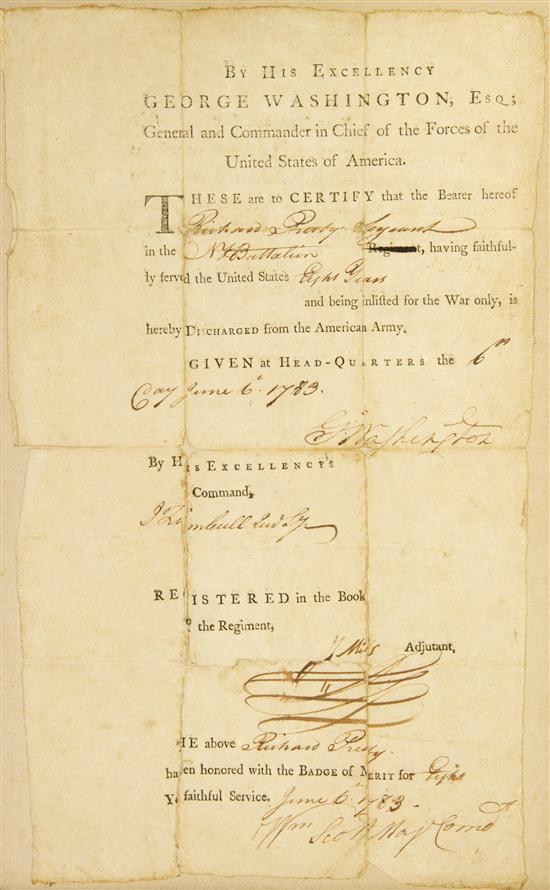 BY HIS EXCELLENCY
GEORGE WASHINGTON, ESQ;
General and Commander in Chief of the Forces of the
United States of America.
THESE are to CERTIFY that the Bearer hereof
Richard Serjeant
in the Battalion Regiment, having faithful-
ly served the United States Eight Years
and being inlisted for the War only, is
hereby DISCHARGED from the American Army.
GIVEN at HEAD-QUARTERS the 6
Day June 6 1783.
Go Washington
By HIS EXCELLENCY'S
Command,
J Trumbull
REGISTERED in the Book
the Regiment,
Adjutant.
HE above Richard
ha en honored with the BADGE of MERIT for Eight
Ye faithful Service. June 6 1783.
Wm Scott Maj Comd